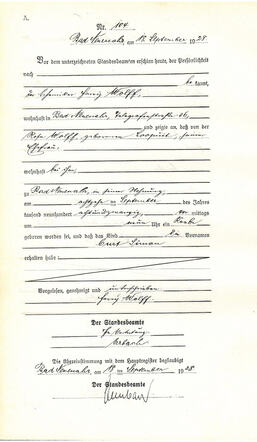 A.
Nr. 104
Bad Neuenahr, am 18. September 1928
Vor dem unterzeichneten Standesbeamten erschien heute, der Persönlichkeit
nach be kannt,
Wolff
wohnhaft in Bad Neuenahr, Telegrafenstraße
und zeigte an, daß von der
Wolff, geborenen seiner
Ehefrau
wohnhaft bei ihm,
zu Bad Neuenahr, in seiner Wohnung,
am September des Jahres
tausend neunhundert achtundzwanzig, vor mittags
um neun Uhr ein Knabe
geboren worden sei, und daß das Kind die Vornamen
Curt Simon
erhalten habe
Vorgelesen, genehmigt und unterschrieben
Wolff
Der Standesbeamte
In Vertretung
Die Übereinstimmung mit dem Hauptregister beglaubigt
Bad Neuenahr, am 18. September 1928
Der Standesbeamte